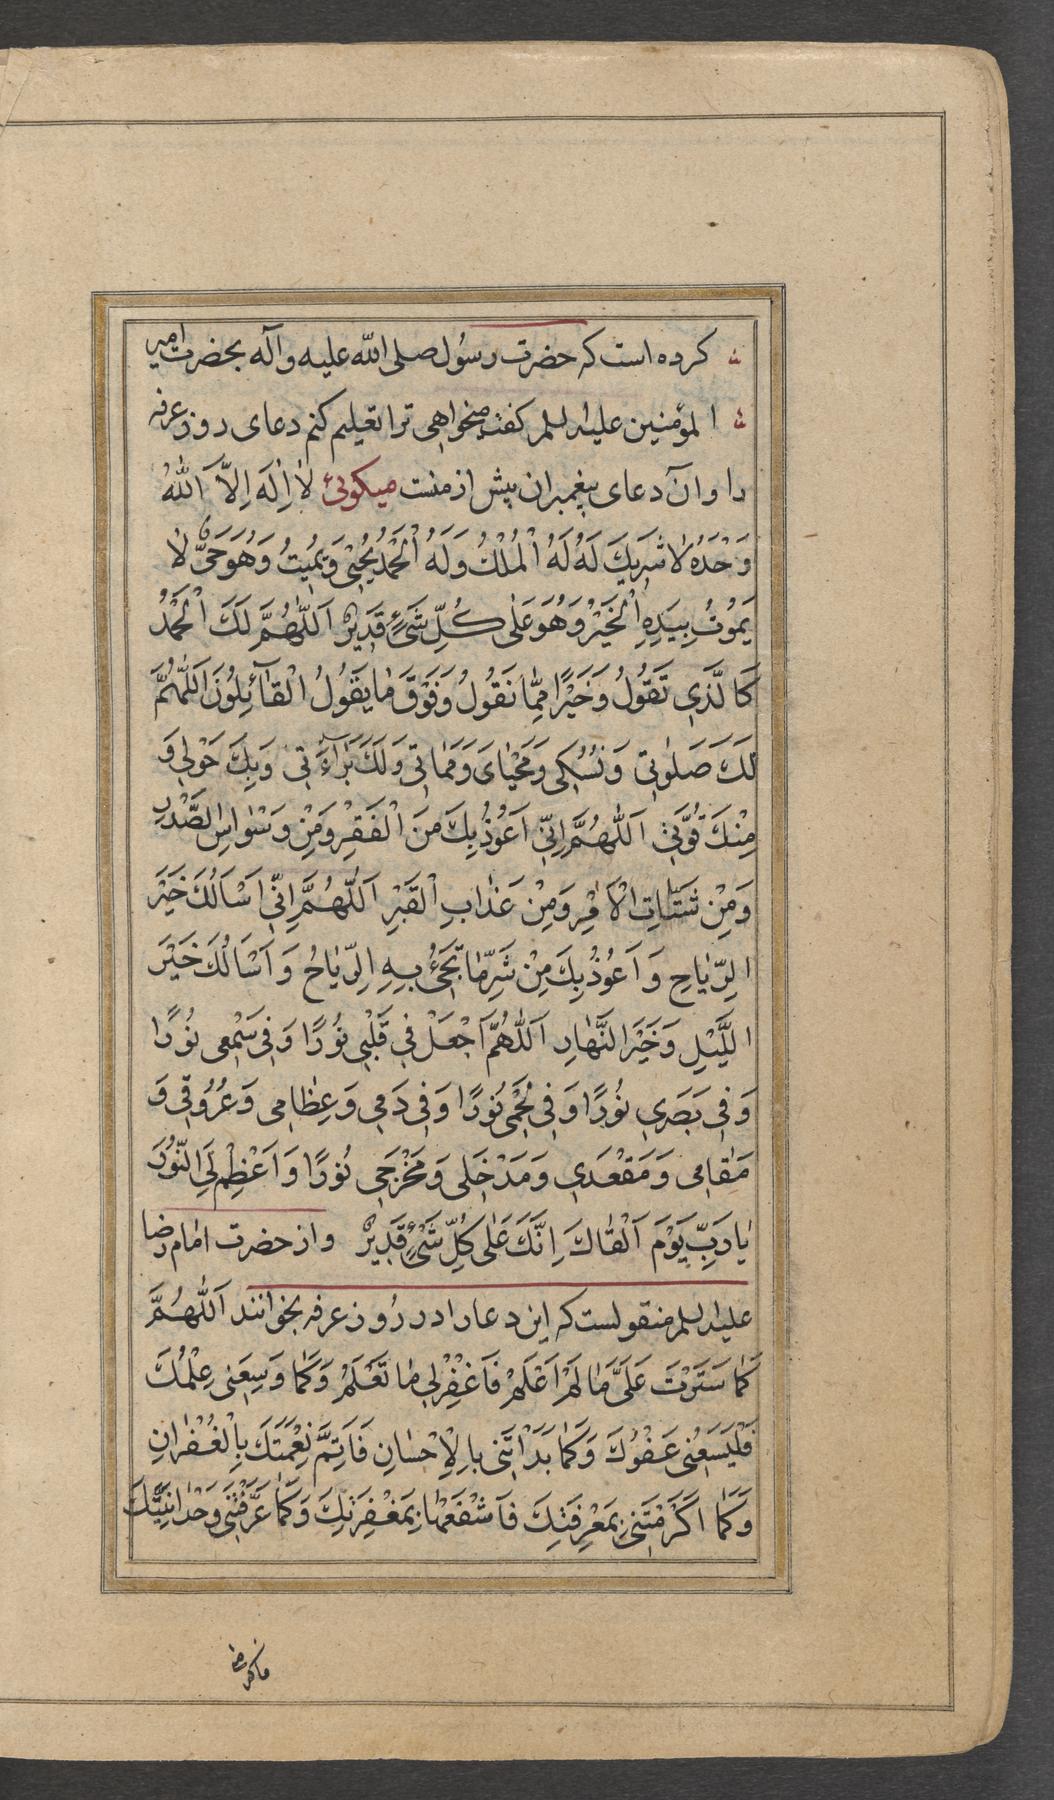 كرده است كه حضرت رسُول صلى الله عليه وآله بحضرت امير
المؤمنين عليه السلم كفت ميخواهى ترا تعليم كنم دعاى روز عرفه
را وآن دعاى پيغمبران پيش از منست ميكوئى لٰا اِلٰهَ اِلاَّ اَللّٰهُ
وَحْدَهُ لٰا شَرِيكَ لَهُ لَهُ اْلمُلْكُ وَلَهُ اْلحَمْدُ يُحْيِى وَيُمِيتُ وَهُوَ حَىٌّ لٰا
يَمُوتُ بِيَدِهِ اْلخَيْرُ وَهُوَ عَلٰى كُلِّ شَىْءٍ قَدِيرٌ اَللّٰهُمَّ لَكَ اْلحَمْدُ
كَالَّذِى تَقُولُ وَخَيْرًا مِمّٰا نَقُولُ وَفَوْقَ مٰا يَقُولُ اْلقٰآئِلُونَ اَللّٰهُمَّ
لَكَ صَلوٰتِى وَنُسُكِى وَمَحْيٰاىَ وَمَمٰاتِى وَلَكَ بَرٰآءَتِى وَبِكَ حَوْلِى وَ
مِنْكَ قُوَّتِى اَللّٰهُمَّ اِنِّى اَعُوذُ بِكَ مِنَ اْلفَقْرِ وَمِنْ وَسْوٰاسِ الصَّدْرِ
وَمِنْ شَتٰاتِ اْلاَمْرِ وَمِنْ عَذٰابِ اْلقَبْرِ اَللّٰهُمَّ اِنِّى اَسْاَلُكَ خَيْرَ
الرِّيٰاحِ وَاَعُوذُ بِكَ مِنْ شَرِّ مٰا تَجِىءُ بِهِ الرِّيٰاحُ وَاَسْاَلُكَ خَيْرَ
اللَّيْلِ وَخَيْرَ النَّهٰارِ اَللّٰهُمَّ اَجْعَلْ فِى قَلْبِى نُورًا وَفِى سَمْعِى نُورًا
وَفِى بَصَرِى نُورًا وَفِى لَحْمِى نُورًا وَفِى دَمِى وَعِظٰامِى وَعُرُوقِى وَ
مَقٰامِى وَمَقْعَدِى وَمَدْخَلِى وَمَخْرَجِى نُورًا وَاَعْظِمْ لِىَ النُّورَ
يٰا رَبِّ يَوْمَ اَلْقٰاكَ اِنَّكَ عَلٰى كُلِّ شَىْءٍ قَدِيرٌ واز حضرت امٰام رضا
عليه السلم منقولست كه اين دعا را در رُوز عرفه بخوانند اَللّٰهُمَّ
كَمٰا سَتَرْتَ عَلَىَّ مٰا لَمْ اَعْلَمْ فَاغْفِرْ لِى مٰا تَعْلَمْ وَكَمٰا وَسِعَنِى عِلْمُكَ
فَلْيَسَعْنِى عَفْوُكَ وَكَمٰا بَدَاْتَنِى بِالْاِحْسٰانِ فَاَتِمَّ نِعْمَتَكَ بِاْلغُفْرٰانِ
وَكَمٰا اَكْرَمْتَنِى بِمَعْرِفَتِكَ فَاشْفَعْهٰا بِمَغْفِرَتِكَ وَكَمٰا عَرَّفْتَنِى وَحْدٰانِيَّتَكَ
فاكرمنى